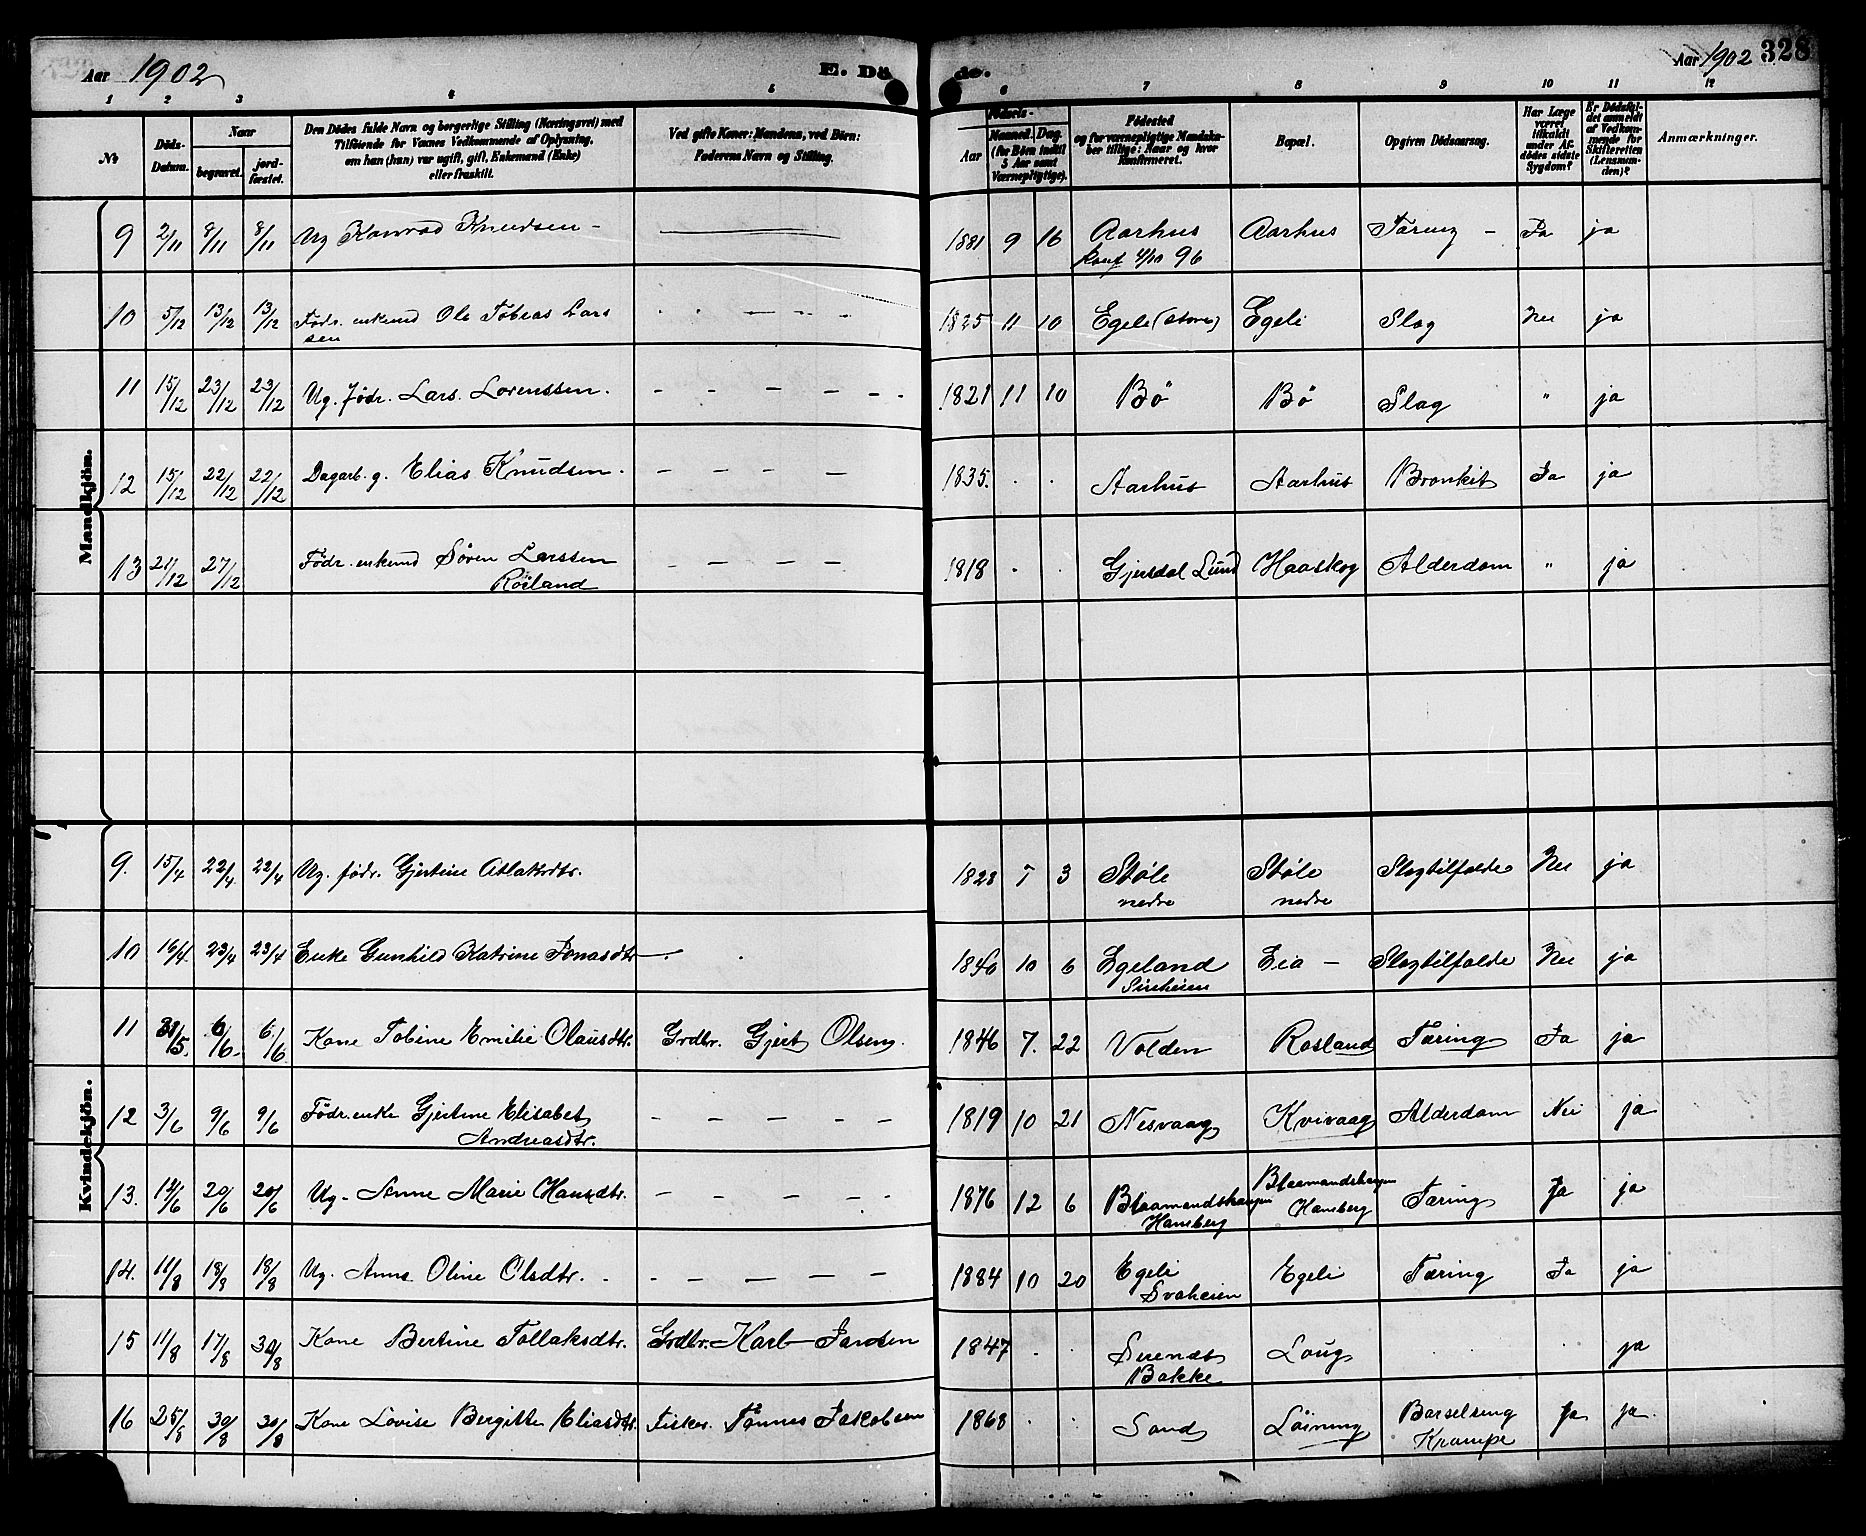 Aar 1902 E. Døde. Aar 1902 328
1 2 3 4 5 6 7 8 9 10 11 12
№
Døds-Datum.
Naar
begravet.
jordfæstet.
Den Dødes fulde Navn og borgerlige Stilling (Næringsvei) med
Tilføiende for Voxnes Vedkommende af Oplysning,
om han (hun) var ugift, gift, Enkemand (Enke)
eller fraskilt.
Ved gifte Koner: Mandens, ved Børn:
Faderens Navn og Stilling.
Fødsels-
Aar
Maaned. Dag.
(for Børn indtil
5 Aar samt
Værnepligtige).
Fødested
og for værnepligtige Mandska-
ber tillige: Naar og hvor
Konfirmeret.
Bopæl.
Opgiven Dødsaarsag.
Har Læge
været
tilkaldt
under Af-
dødes sidste
Sygdom?
Er Dødsfal-
det anmeldt
af Vedkom-
mende for
Skifteretten
(Lensman-
den)?
Anmærkninger.
Mandkjön.
9 2/11 8/11 8/11 Ug Konrad Knudsen - 1881 9 16 Aarhus Aarhus Tæring - Ja ja
konf 4/10 96
10 5/12 13/12 13/12 Födr. enkemd Ole Tobias Lars 1825 11 10 Egeli (store) Egeli Slag Nei ja
sen
11 15/12 23/12 23/12 Ug. födr. Lars Lorenssen. - - - - - 1821 11 10 Bö Bö Slag " ja
12 15/12 22/12 22/12 Dagarb. g. Elias Knudsen. - - - - 1835. Aarhus Aarhus Bronkit Ja ja
13 21/12 27/12 Födr. enkemd Sören Larssen - - - - 1818 Gjersdal Lund Haaskog Alderdom " ja
Rösland
Kvindekjön.
9. 15/4 22/4 22/4 Ug. födr. Gjertine Atlaksdtr. 1828 5 3 Stöle Stöle Slagtilfælde Nei ja
nedre nedre
10 16/4 23/4 23/4 Enke Gunhild Katrine Jonasdtr 1840 10 6 Egeland Eia - Slagtilfælde Nei ja
Sireheien
11 31/5. 6/6. 6/6 Kone Tobine Emilie Olausdtr. Grdbr. Gjert Olsen. 1846 7. 22 Volden Rosland Tæring Ja ja
12 3/6 9/6 9/6 Födr. enke Gjertine Elisabet - - - - - 1819 10 21 Nesvaag Kvivaag Alderdom Nei ja
Andreasdtr.
13. 14/6 20/6 20/6 Ug. Senne Marie Hansdtr. - - - - - 1876 12 6 Blaamandshaugen Blaamandshaugen Tæring Ja ja
Haueberg Hauеberg
14. 11/8 18/8 18/8 Ug. Anne Oline Olsdtr. - - - - - - 1884 10 20 Egeli Egeli Tæring Ja ja
Svaheien
15 11/8 17/8 30/8 Kone Bertine Tollaksdtr. Grdbr. Karl Jansen 1847 Serendt Loug ja
Bakke
16 25/8 30/8 30/8 Kone Lovise Bergitte Eliasdtr. Fisker. Tönnes Jakobsen 1868 Sand Löining Barselseng Ja ja.
Krampe